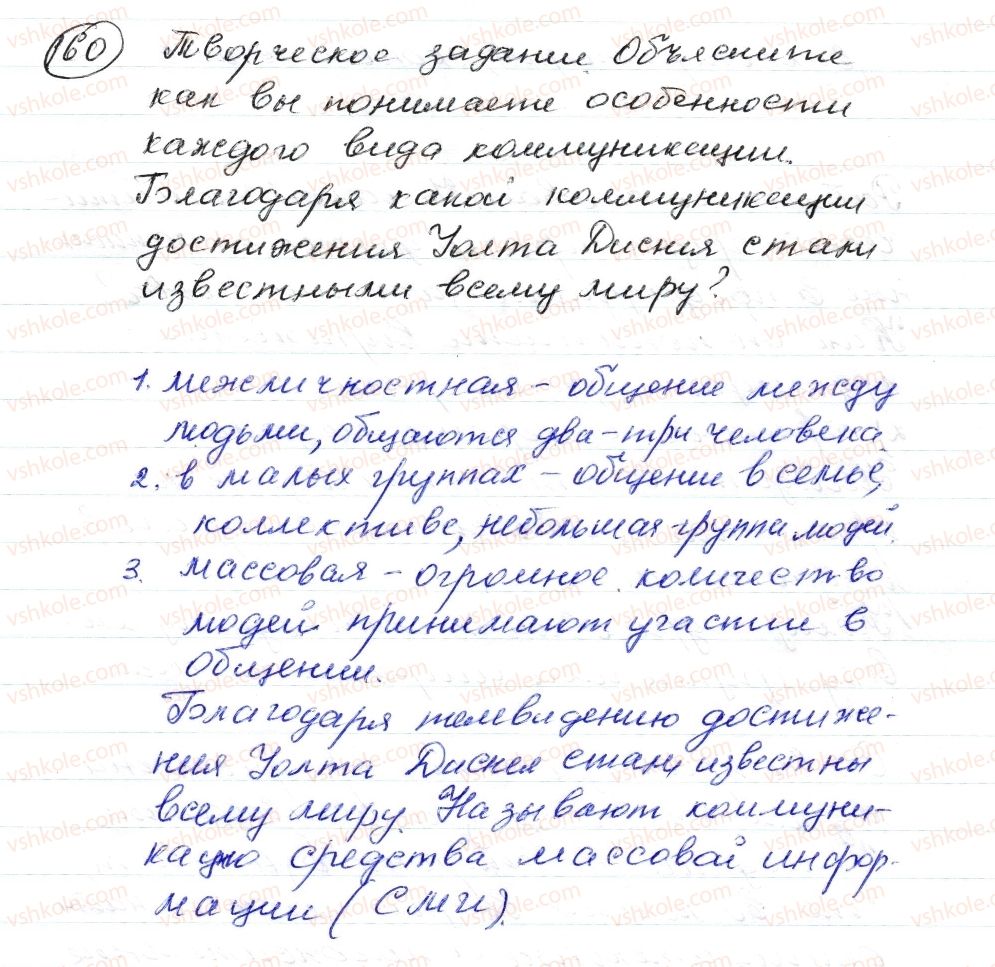 160 Творческое задание. Объясните
как вы понимаете особенности
каждого вида коммуникации.
Благодаря какой коммуникации
достижения Уолта Диснея стали
известными всему миру?
1. межличностная – общение между
людьми, общаются два-три человека
2. в малых группах – общение в семье,
коллективе, небольшая группа людей.
3. массовая – огромное количество
людей принимают участии в
общении.
Благодаря телевидению достиже-
ния Уолта Диснея стали известны
всему миру. Называют коммуни-
кацию средства массовой инфор-
мации (СМИ).